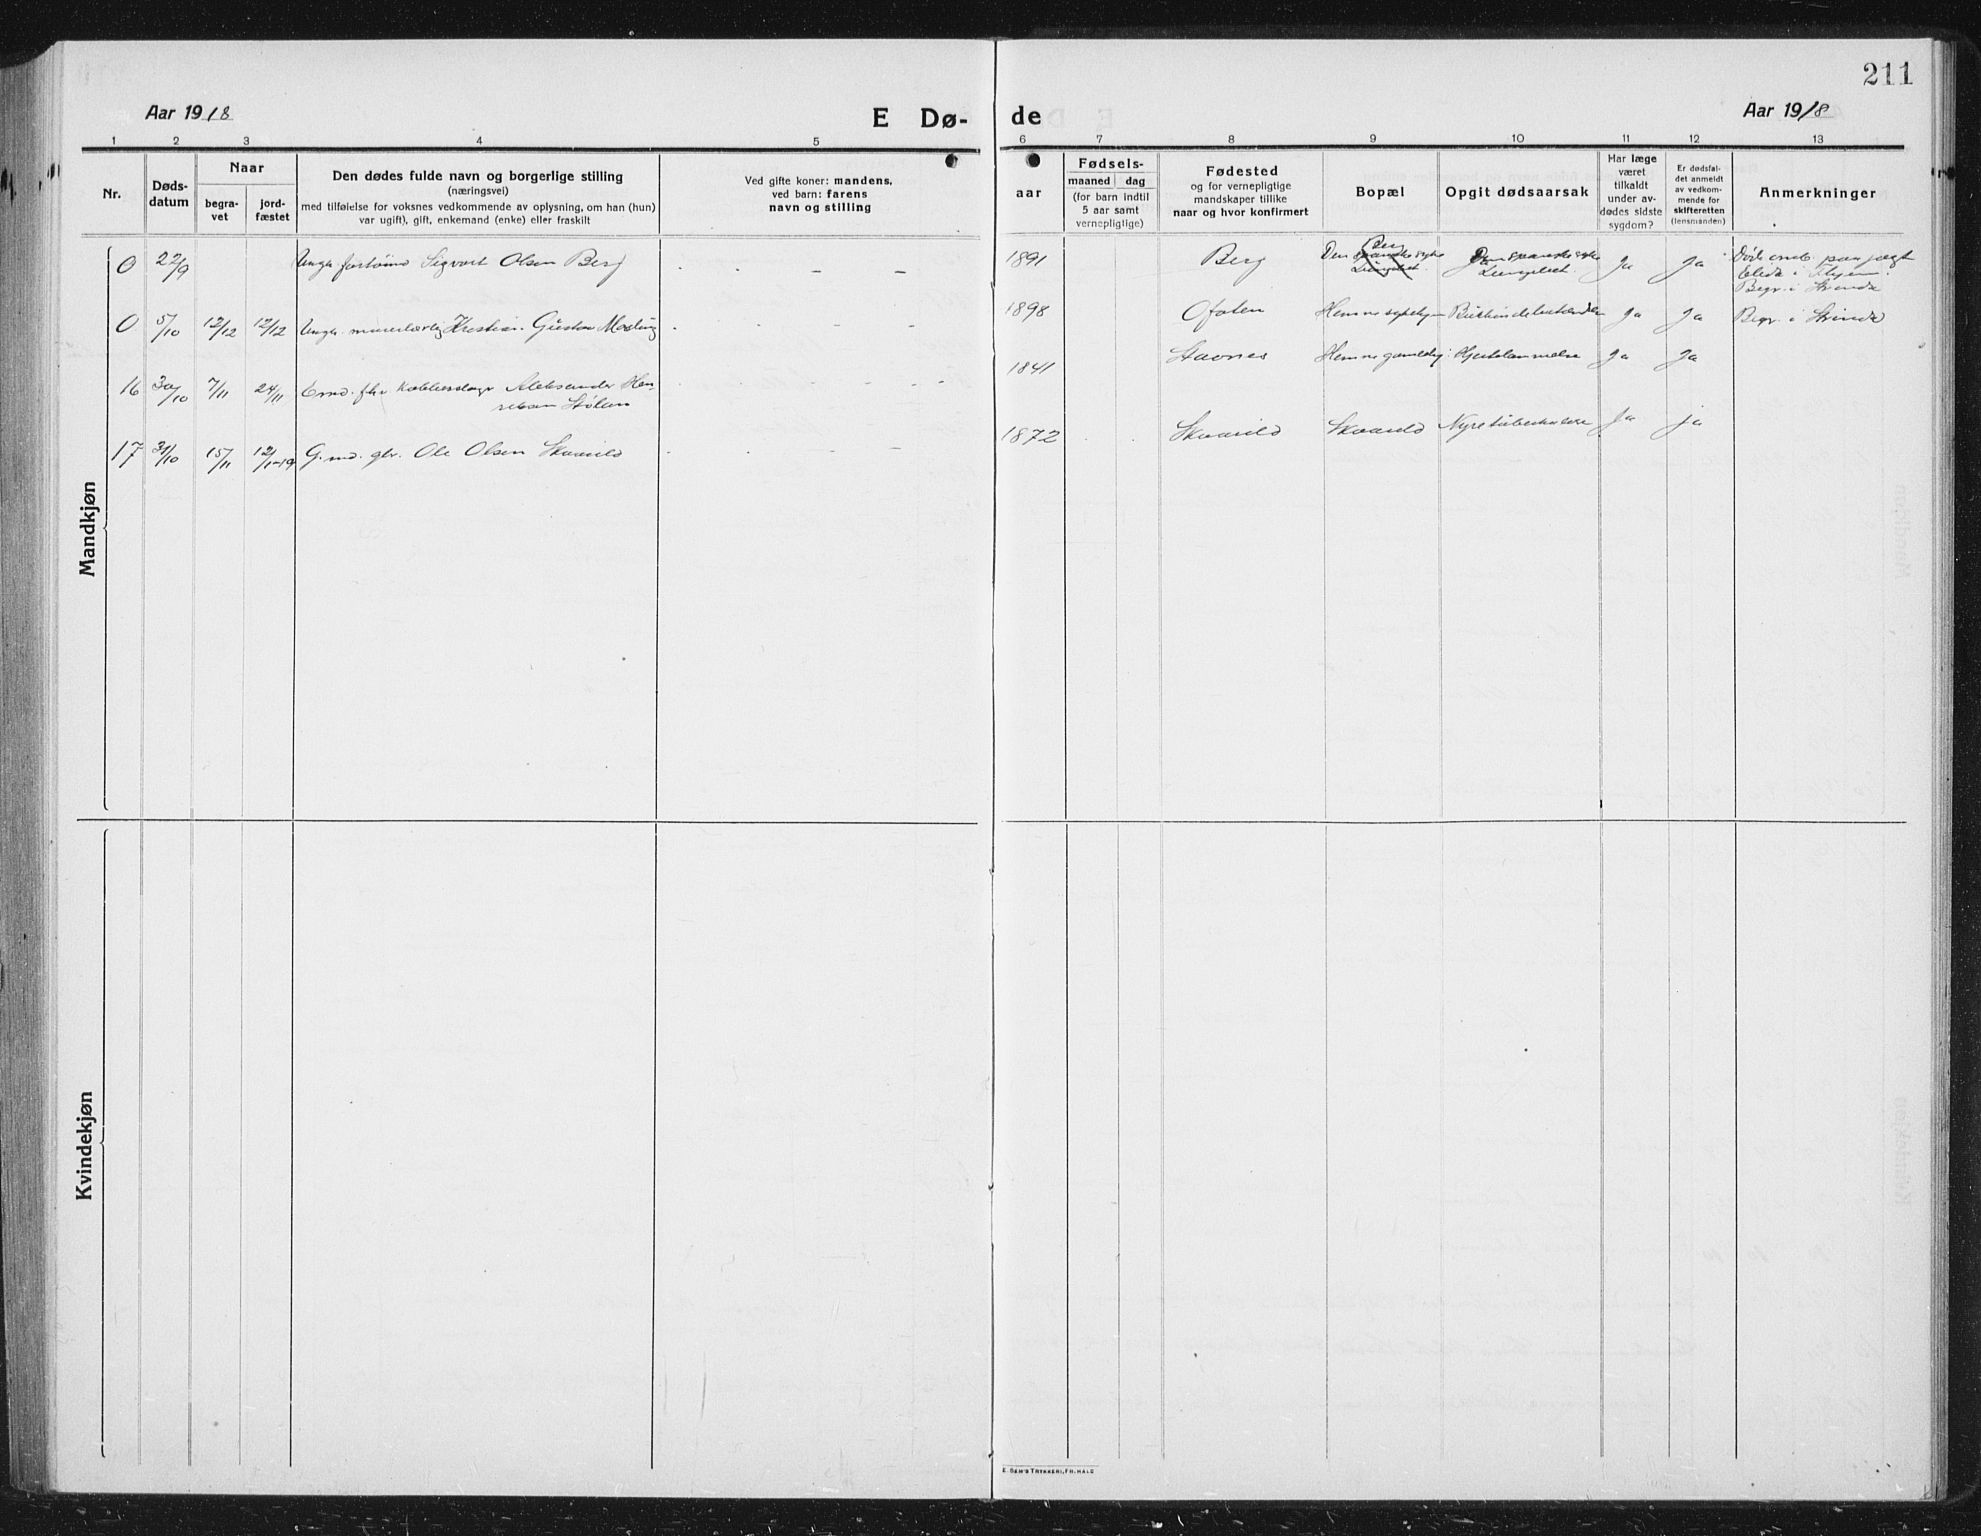 211
Aar 1918
E Dø-
de
Aar 1918
1 2 3 4 5 6 7 8 9 10 11 12 13
Nr.
Døds-
datum
Naar
begra-
vet
jord-
fæstet
Den dødes fulde navn og borgerlige stilling
(næringsvei)
med tilføielse for voksnes vedkommende av oplysning, om han (hun)
var ugift), gift, enkemand (enke) eller fraskilt
Ved gifte koner: mandens,
ved barn: farens
navn og stilling
aar
Fødsels-
maaned dag
(for barn indtil
5 aar samt
vernepligtige)
Fødested
og for vernepligtige
mandskaper tillike
naar og hvor konfirmert
Bopæl
Opgit dødsaarsak
Har læge
været
tilkaldt
under av-
dødes sidste
sygdom?
Er dødsfal-
det anmeldt
av vedkom-
mende for
skifteretten
(lensmanden)
Anmerkninger
Mandkjøn
0 22/9 Sigvart Olsen Berg - - - 1891 Berg Berg Den spanske syke Ja Ja
Lungebet.
Begr. i Strinda
0 5/10 12/12 12/12 Ungk. Kristian Gustav - - - 1898 Ofoten Ja Ja Begr. i Strinda
16 30/10 7/11 24/11 Kobberslager Aleksander Hen-
riksen Stølan - - - 1841 Stavnes Hemne gamlehj. Hjertelammelse Ja Ja
17 31/10 15/11 12/1-19 G.md. gbr. Ole Olsen Skaarild - - - 1872 Skaarild Skaarild Nyretuberkulose Ja ja
Kvindekjøn
E. SEM'S TRYKKERI, FR.HALD